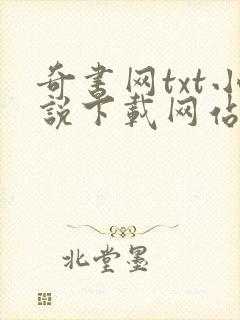 奇書网txt小
說下載网佔
北堂墨